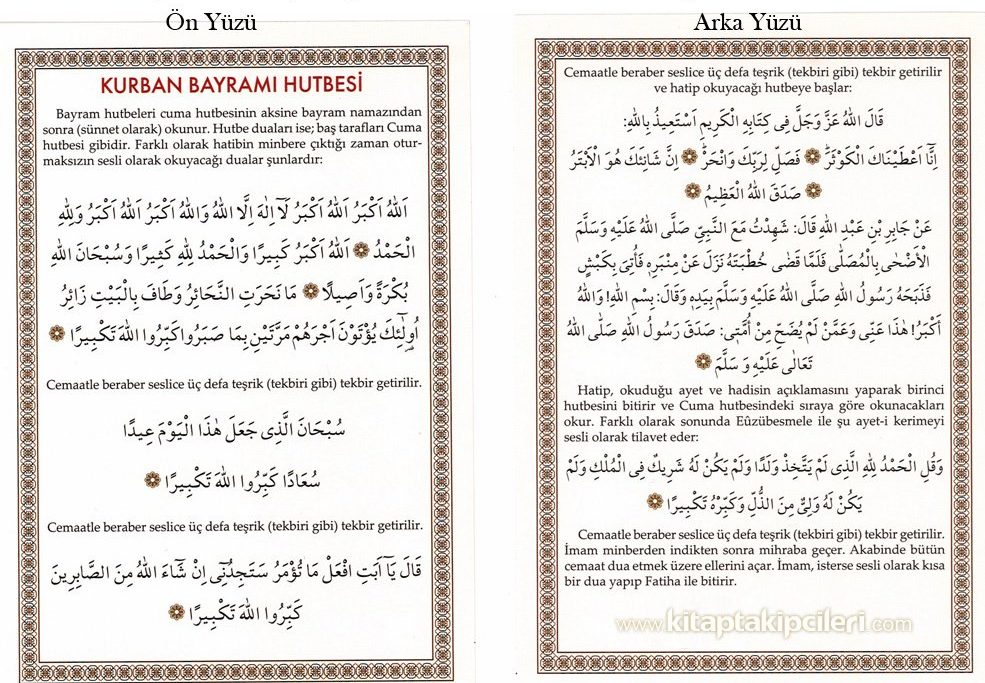 Ön Yüzü
KURBAN BAYRAMI HUTBESİ
Bayram hutbeleri cuma hutbesinin aksine bayram namazından
sonra (sünnet olarak) okunur. Hutbe duaları ise; baş tarafları Cuma
hutbesi gibidir. Farklı olarak hatibin minbere çıktığı zaman otur-
maksızın sesli olarak okuyacağı dualar şunlardır:
اَللهُ اَكْبَرُ اَللهُ اَكْبَرُ لَآ اِلٰهَ اِلَّا اللهُ وَاللهُ اَكْبَرُ اَللهُ اَكْبَرُ وَلِلهِ
الْحَمْدُ ۞ اَللهُ اَكْبَرُ كَبِيرًا وَالْحَمْدُ لِلهِ كَثِيرًا وَسُبْحَانَ اللهِ
بُكْرَةً وَاَصِيلًا ۞ مَا نَحَرَتِ النَّحَائِرُ وَطَافَ بِالْبَيْتِ زَائِرُ
اُولٰٓئِكَ يُؤْتَوْنَ اَجْرَهُمْ مَرَّتَيْنِ بِمَا صَبَرُوا كَبِّرُوا اللهَ تَكْبِيرًا ۞
Cemaatle beraber seslice üç defa teşrik (tekbiri gibi) tekbir getirilir.
سُبْحَانَ الَّذِى جَعَلَ هٰذَا الْيَوْمَ عِيدًا
سُعَادًا كَبِّرُوا اللهَ تَكْبِيرًا ۞
Cemaatle beraber seslice üç defa teşrik (tekbiri gibi) tekbir getirilir.
قَالَ يَآ اَبَتِ افْعَلْ مَا تُؤْمَرُ سَتَجِدُنِى اِنْ شَآءَ اللهُ مِنَ الصَّابِرِينَ
كَبِّرُوا اللهَ تَكْبِيرًا ۞
Arka Yüzü
Cemaatle beraber seslice üç defa teşrik (tekbiri gibi) tekbir getirilir
ve hatip okuyacağı hutbeye başlar:
قَالَ اللهُ عَزَّ وَجَلَّ فِى كِتَابِهِ الْكَرِيمِ اَسْتَعِيذُ بِاللهِ:
اِنَّآ اَعْطَيْنَاكَ الْكَوْثَرَ ۞ فَصَلِّ لِرَبِّكَ وَانْحَرْ ۞ اِنَّ شَانِئَكَ هُوَ الْاَبْتَرُ
۞ صَدَقَ اللهُ الْعَظِيمُ ۞
عَنْ جَابِرِ بْنِ عَبْدِ اللهِ قَالَ: شَهِدْتُ مَعَ النَّبِيِّ صَلَّى اللهُ عَلَيْهِ وَسَلَّمَ
الْاَضْحٰى بِالْمُصَلّٰى فَلَمَّا قَضٰى خُطْبَتَهُ نَزَلَ عَنْ مِنْبَرِهِ فَاُتِىَ بِكَبْشٍ
فَذَبَحَهُ رَسُولُ اللهِ صَلَّى اللهُ عَلَيْهِ وَسَلَّمَ بِيَدِهِ وَقَالَ: بِسْمِ اللهِ! وَاللهُ
اَكْبَرُ! هٰذَا عَنِّى وَعَمَّنْ لَمْ يُضَحِّ مِنْ اُمَّتِى: صَدَقَ رَسُولُ اللهِ صَلَّى اللهُ
تَعَالٰى عَلَيْهِ وَ سَلَّمَ ۞
Hatip, okuduğu ayet ve hadisin açıklamasını yaparak birinci
hutbesini bitirir ve Cuma hutbesindeki sıraya göre okunacakları
okur. Farklı olarak sonunda Eûzübesmele ile şu ayet-i kerimeyi
sesli olarak tilavet eder:
وَقُلِ الْحَمْدُ لِلهِ الَّذِى لَمْ يَتَّخِذْ وَلَدًا وَلَمْ يَكُنْ لَهُ شَرِيكٌ فِى الْمُلْكِ وَلَمْ
يَكُنْ لَهُ وَلِىٌّ مِنَ الذُّلِّ وَكَبِّرْهُ تَكْبِيرًا ۞
Cemaatle beraber seslice üç defa teşrik (tekbiri gibi) tekbir getirilir.
İmam minberden indikten sonra mihraba geçer. Akabinde bütün
cemaat dua etmek üzere ellerini açar. İmam, isterse sesli olarak kısa
bir dua yapıp Fatiha ile bitirir.
www.kitaptakipcileri.com